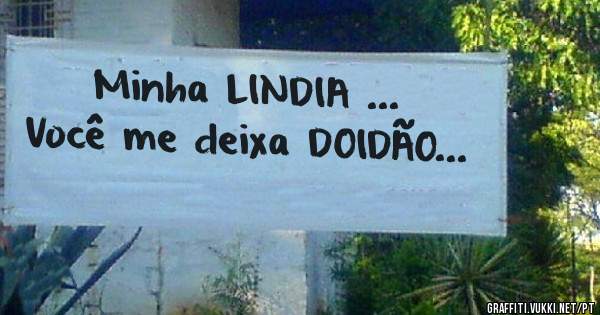 Minha LINDIA ...
Você me deixa DOIDÃO...
GRAFFITI.VUKKI.NET/PT